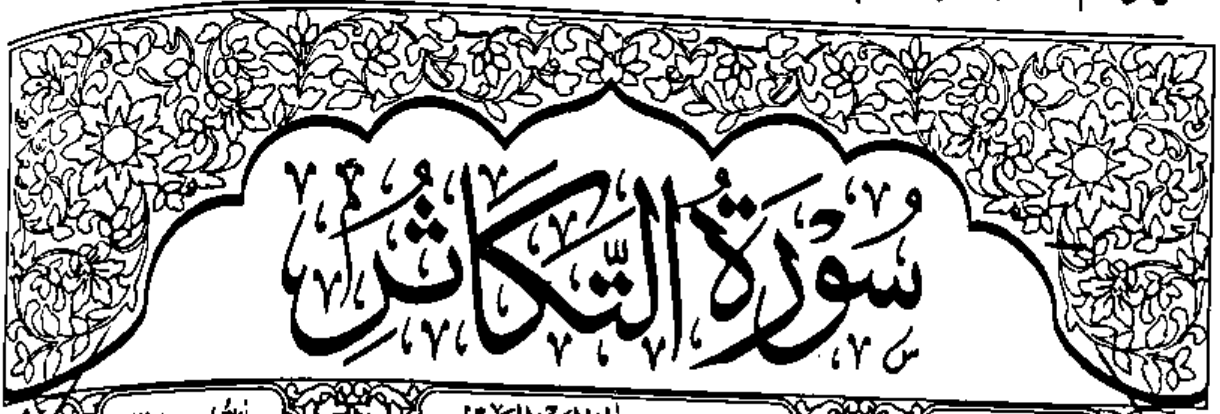 سُوْرَةُ التَّكَاثُرِ